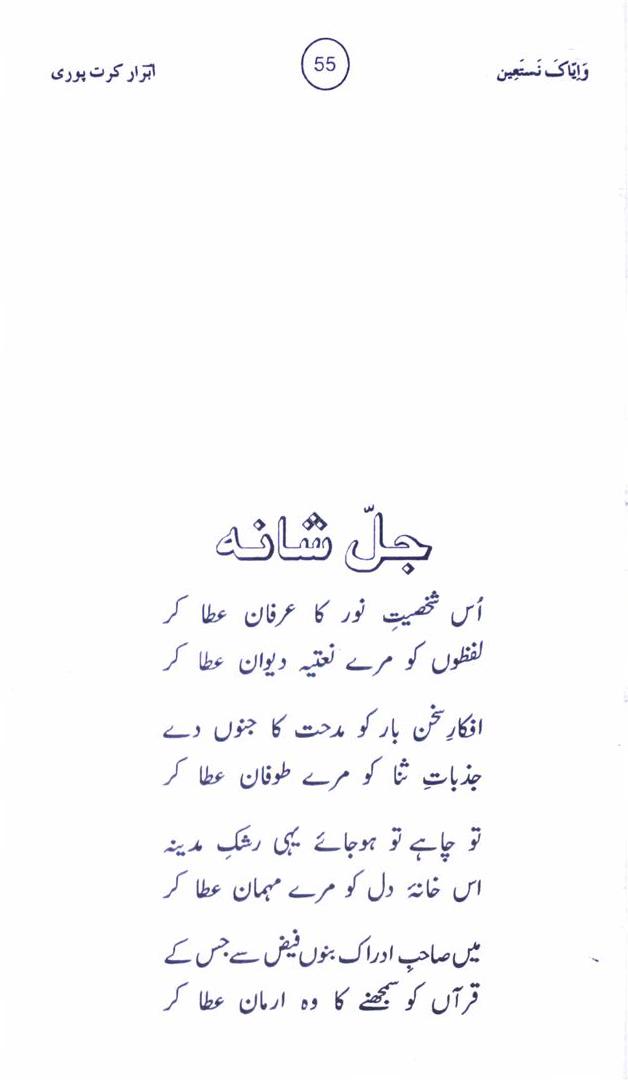 وَاِیّاکَ نَستَعِین
55
ابرار کرت پوری
جلّ شانہ
اُس شخصیتِ نور کا عرفان عطا کر
لفظوں کو مرے نعتیہ دیوان عطا کر
افکارِ سخن بار کو مدحت کا جنوں دے
جذباتِ ثنا کو مرے طوفان عطا کر
تو چاہے تو ہوجائے یہی رشکِ مدینہ
اس خانۂ دل کو مرے مہمان عطا کر
میں صاحبِ ادراک بنوں فیض سے جس کے
قرآں کو سمجھنے کا وہ ارمان عطا کر